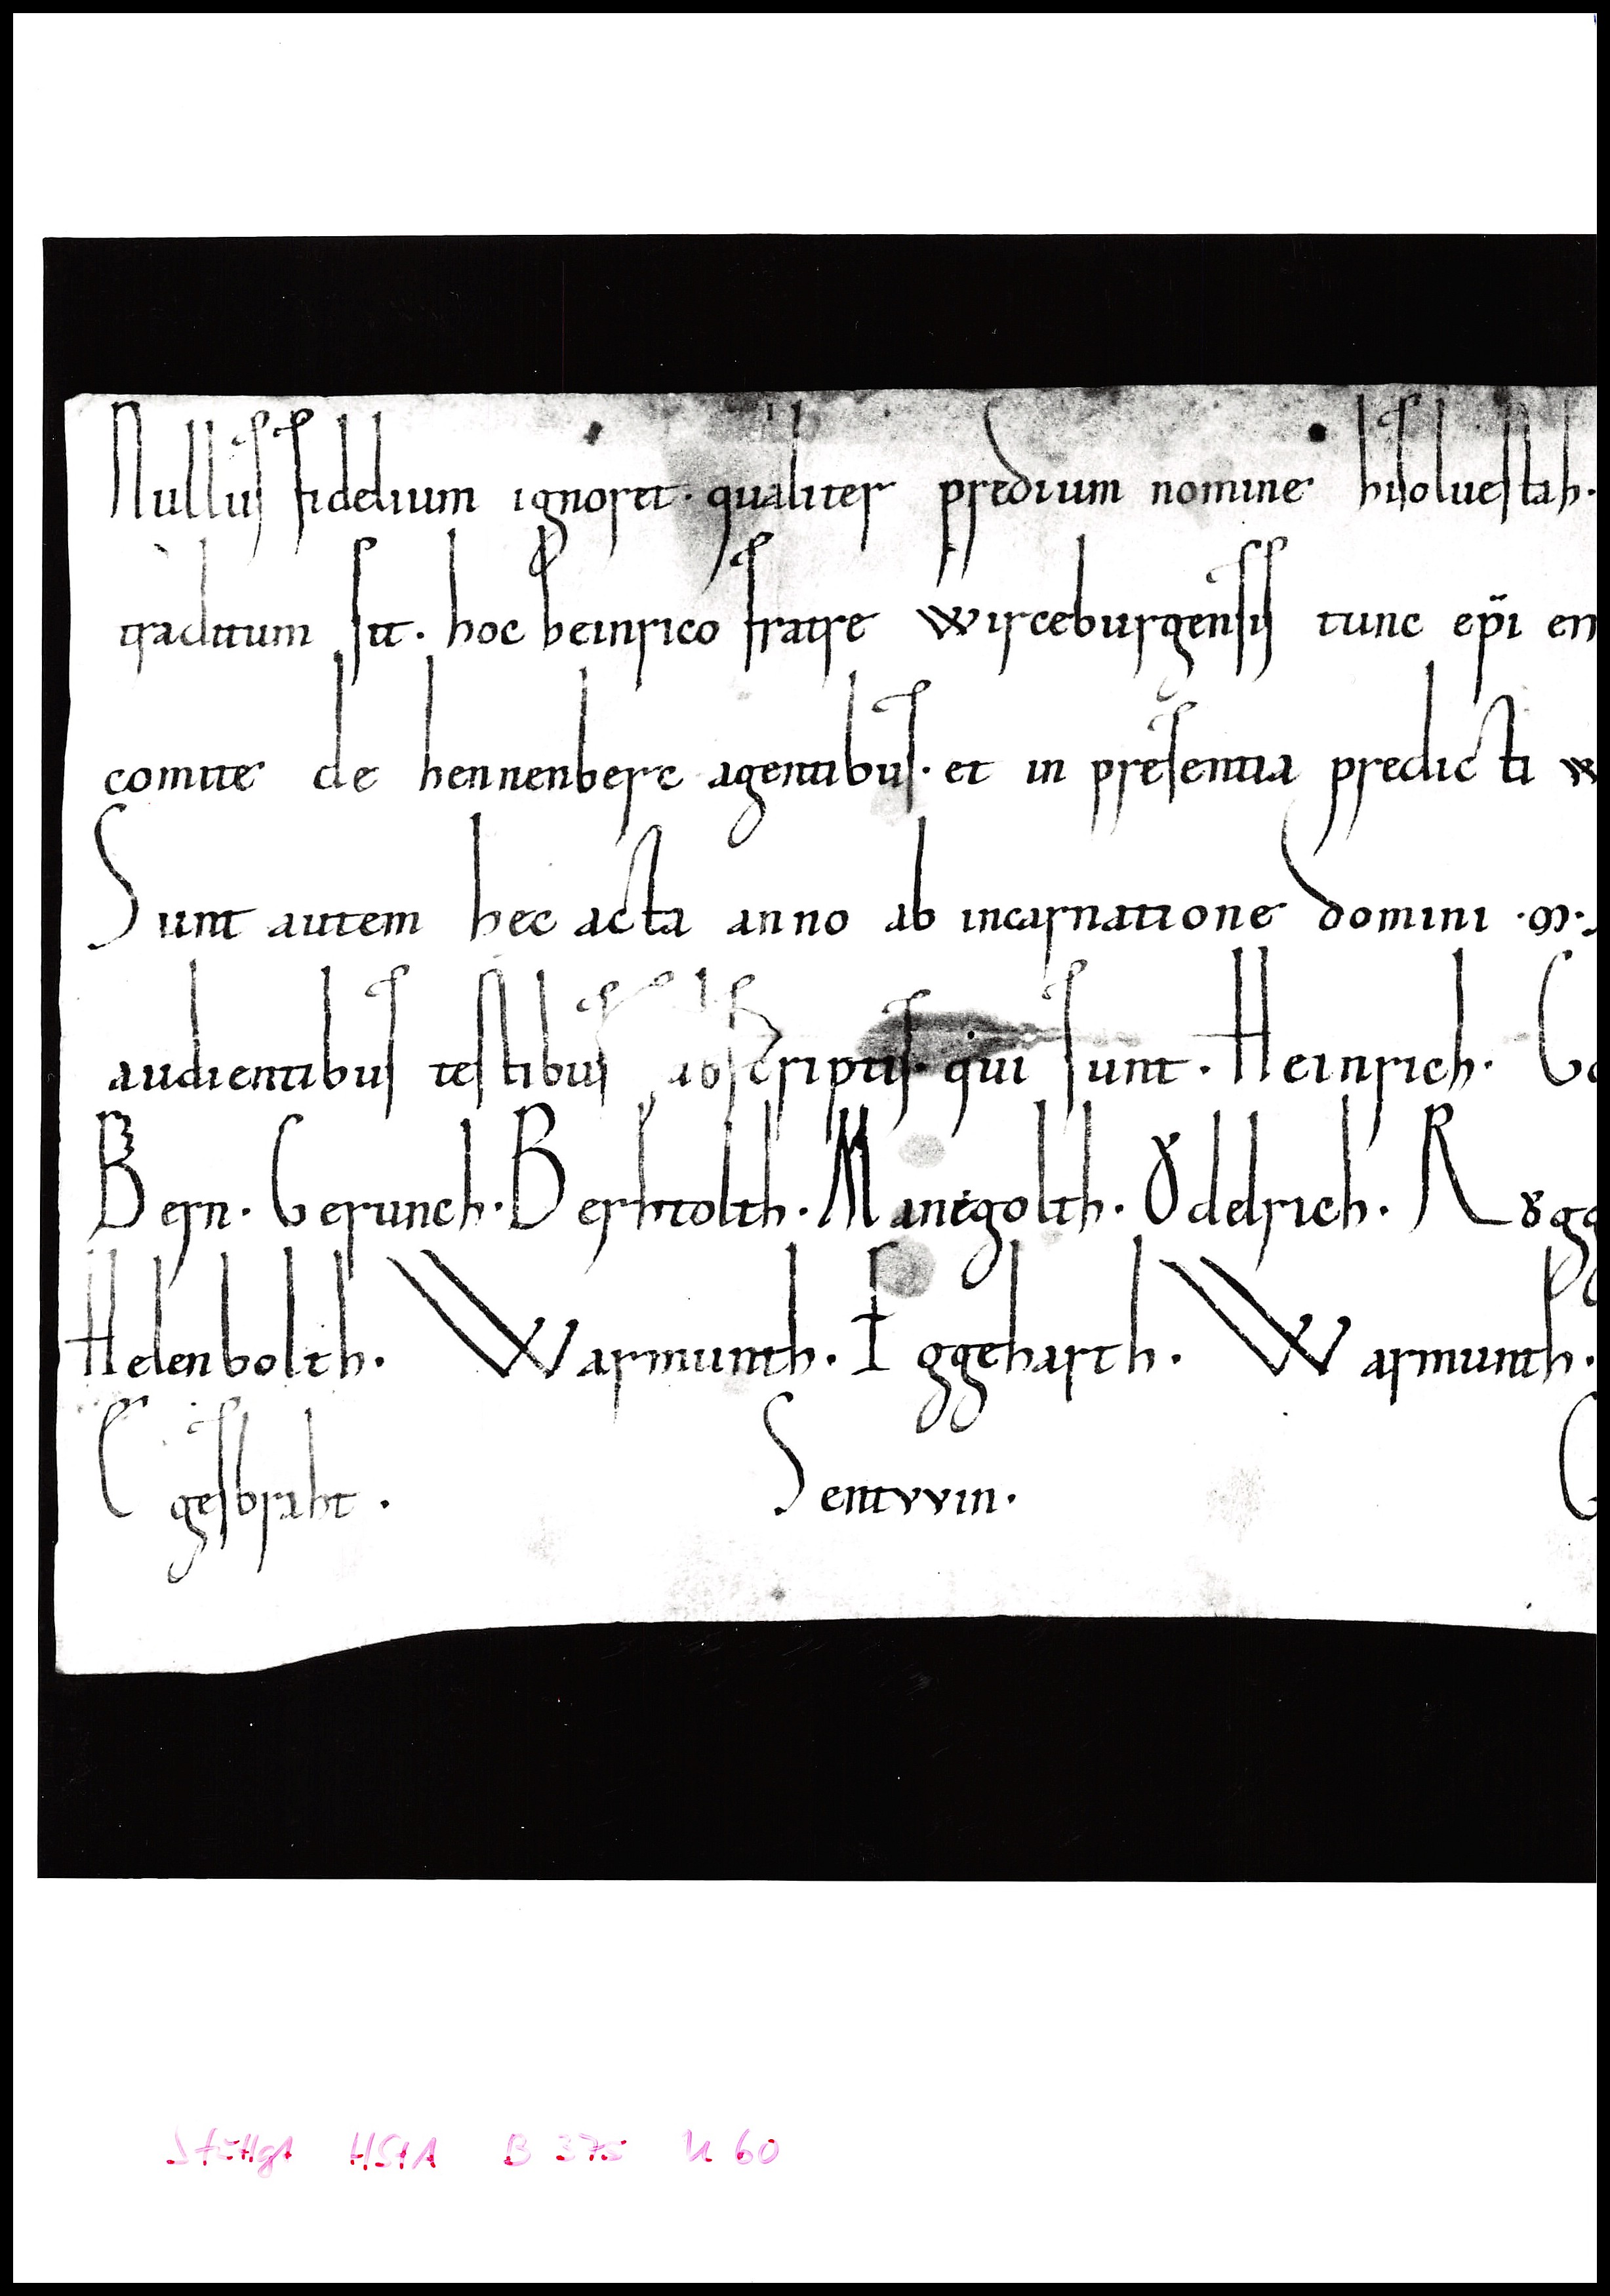 Nullus fidelium ignoret. qualiter predium nomine hisoluestah.
traditum sit. hoc heinrico fratre wirceburgensis tunc epi em
comite de hennenberc agentibus. et in presentia predicti w
Sunt autem hec acta anno ab incarnatione domini .m.
audientibus testibus qui sunt. Heinrich. Go
Bern. Gerunch. Berhtolth. Manegolth. Ůdelrich. Růgg
Helenbolth. Warmunth. Eggeharth. Warmunth.
Egesbraht. Sentvvin. G
Stuttgt HStA B 375 U 60